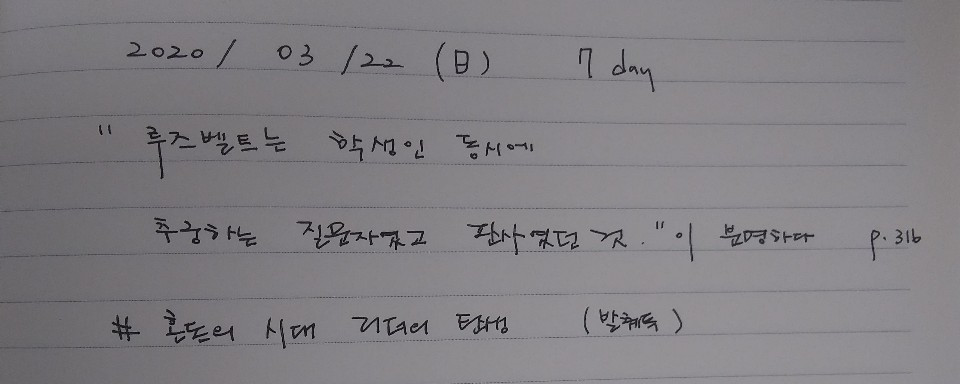 2020 / 03 / 22 (日) 7 day
" 루즈벨트는 학생인 동시에
추궁하는 질문자였고 판사였던 것." 이 분명하다 p. 316
# 혼돈의 시대 리더의 탄생 (발췌독)